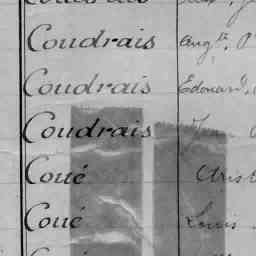 Coudrais Aug.te
Coudrais Edouard,
Coudrais
Coué Arist
Coué Louis